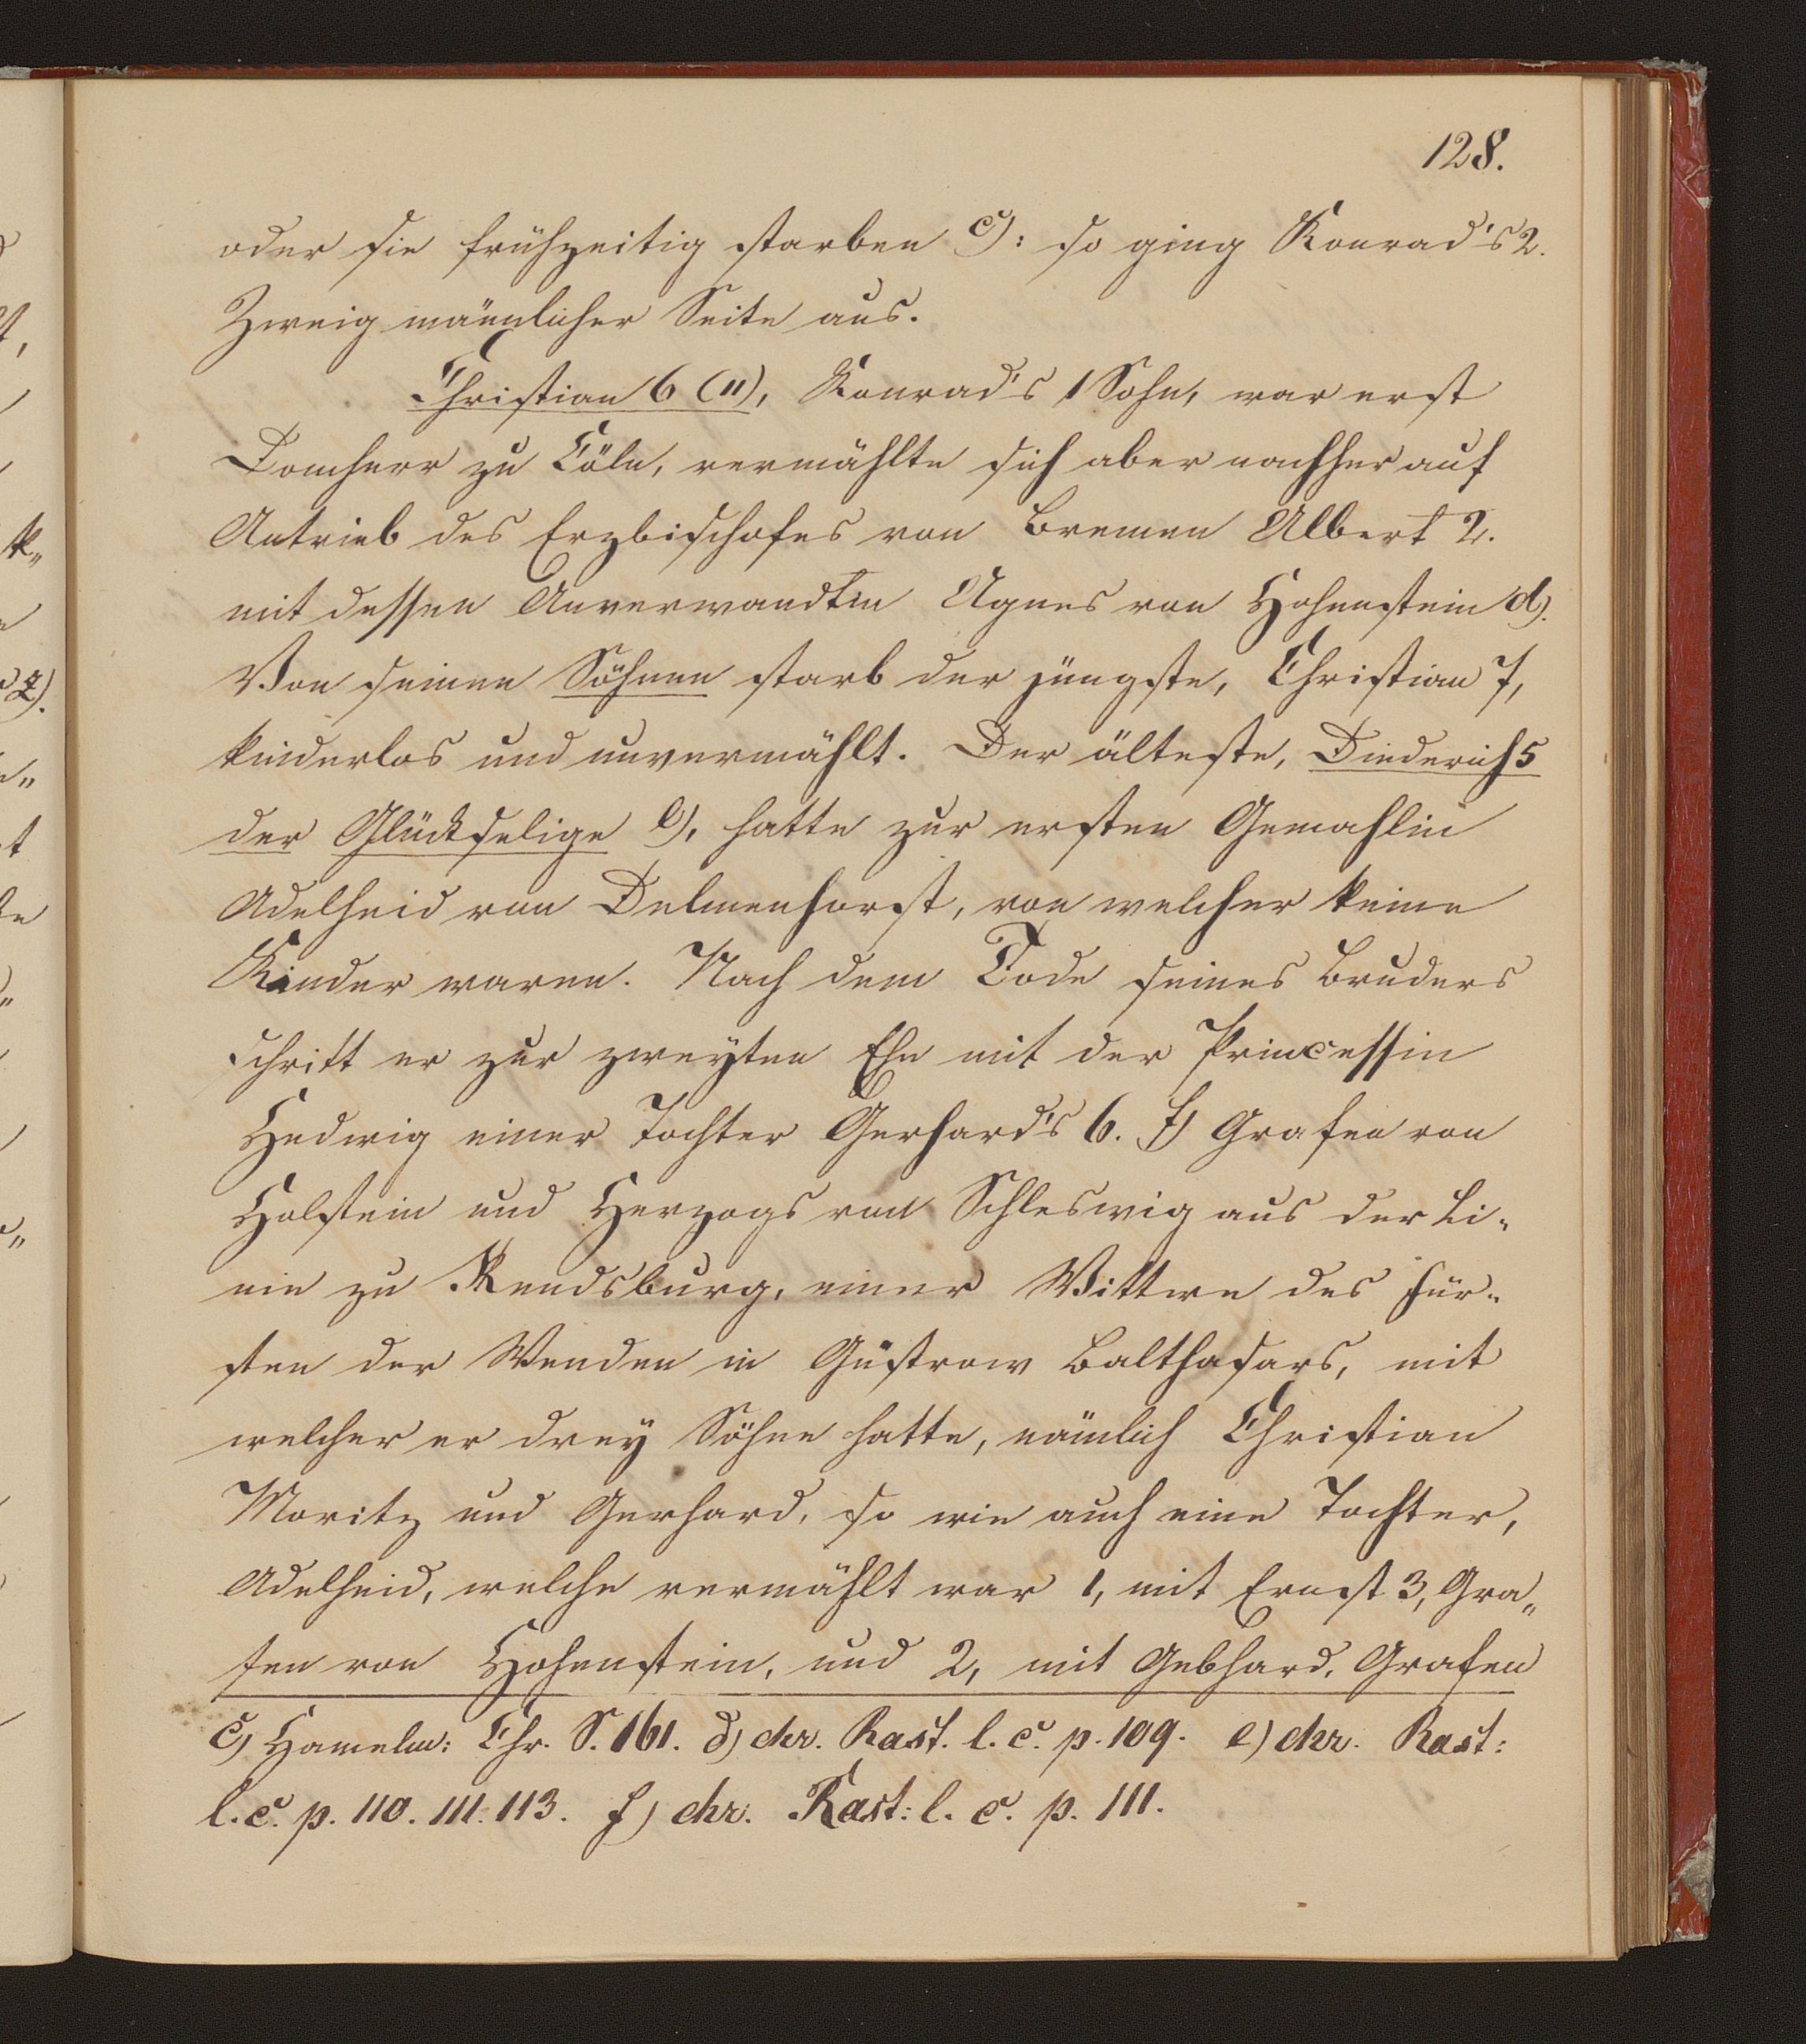 128.
oder sie frühzeitig starben c): so ging Konrad's 2.
Zweig männlicher Seite aus.
Christian 6 (11), Konrad's 1 Sohn, war erst
Domherr zu Cöln, vermählte sich aber nachher auf
Antrieb des Erzbischofes von Bremen Albert 2.
mit dessen Anverwandtin Agnes von Hohenstein d).
Von seinen Söhnen starb der jüngste, Christian 7,
kinderlos und unvermählt. Der älteste, Diederich 5
der Glückselige e), hatte zur ersten Gemahlin
Adelheid von Delmenhorst, von welcher keine
Kinder waren. Nach dem Tode seines Bruders
schritt er zur zweyten Ehe mit der Princessin
Hedwig einer Tochter Gerhard's 6. f) Grafen von
Holstein und Herzogs von Schleswig aus der Li-
nie zu Rendsburg, einer Wittwe des Für-
sten der Wenden in Güstrow Balthasars, mit
welcher er drey Söhne hatte, nämlich Christian
Moritz und Gerhard, so wie auch eine Tochter,
Adelheid, welche vermählt war 1, mit Ernst 3, Gra„
fen von Hohenstein, und 2, mit Gebhard, Grafen
c) Hamelm: Chr. S. 161. d) chr. Rast. l. c. p. 109. e) chr. Rast:
l. c. p. 110. 111. 113. f) chr. Rast: l. c. p. 111.